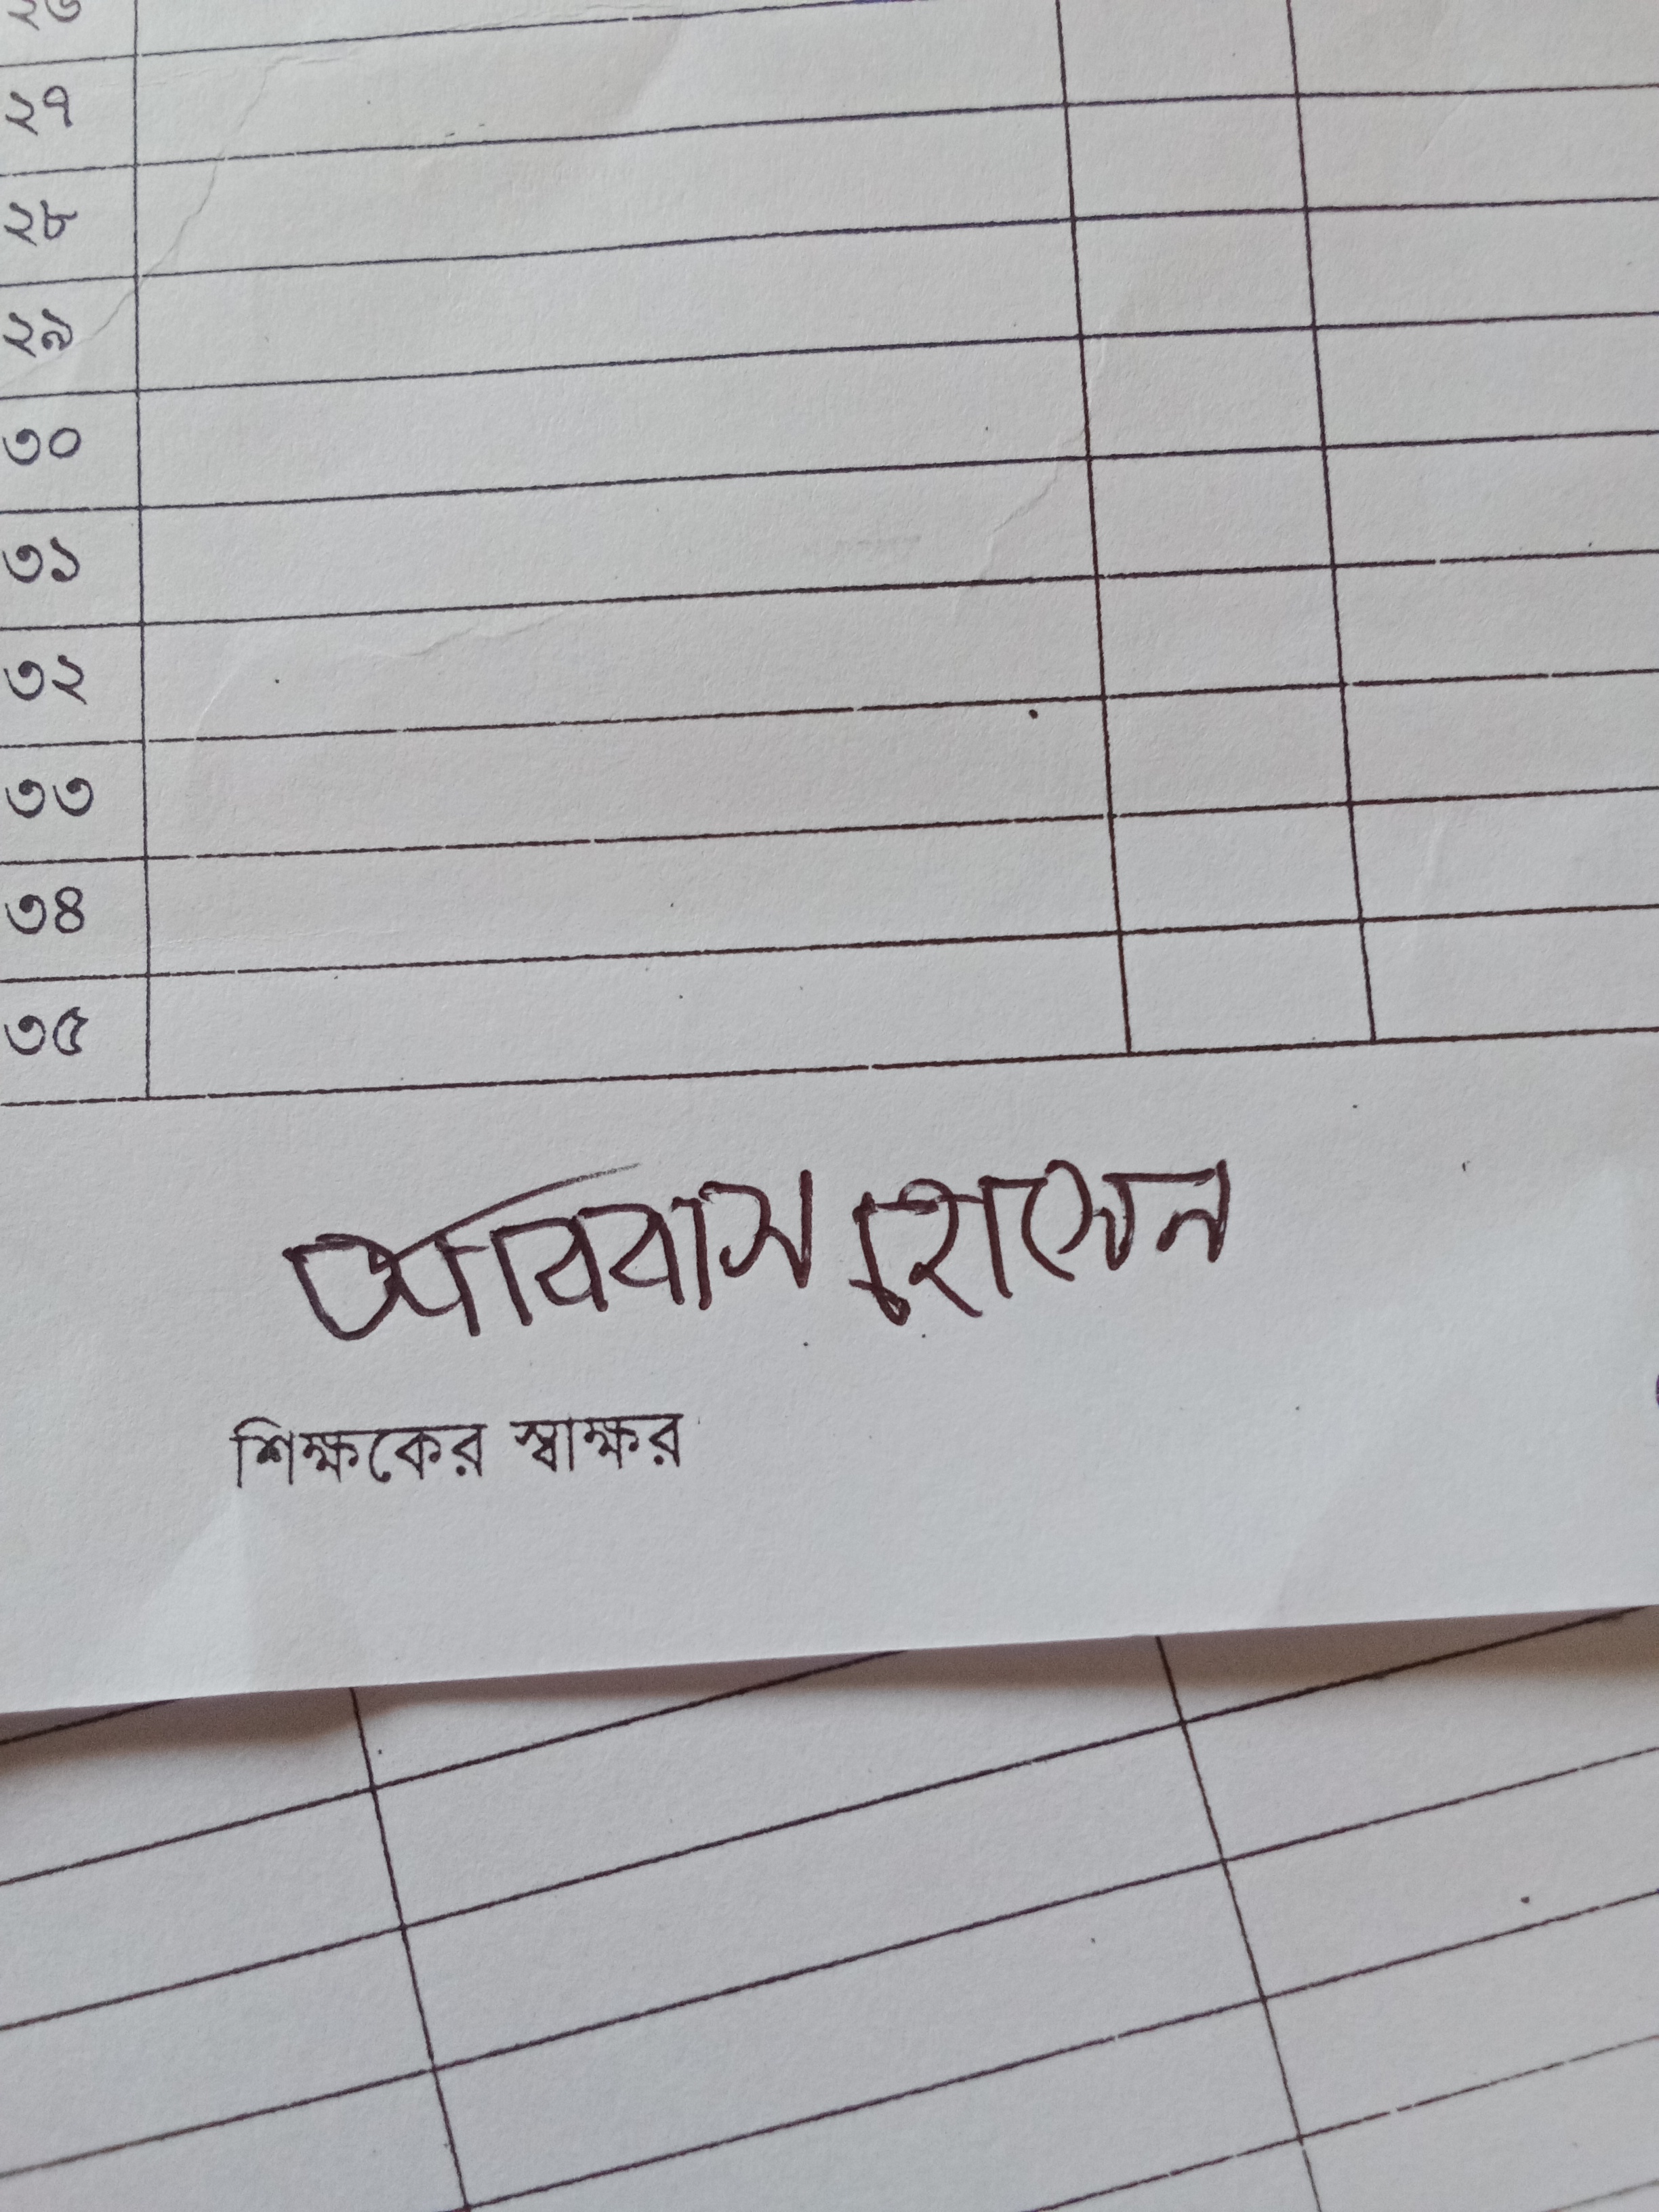 ২৬
২৭
২৮
২৯
৩০
৩১
৩২
৩৩
৩৪
৩৫
আববাস হোসেন
শিক্ষকের স্বাক্ষর